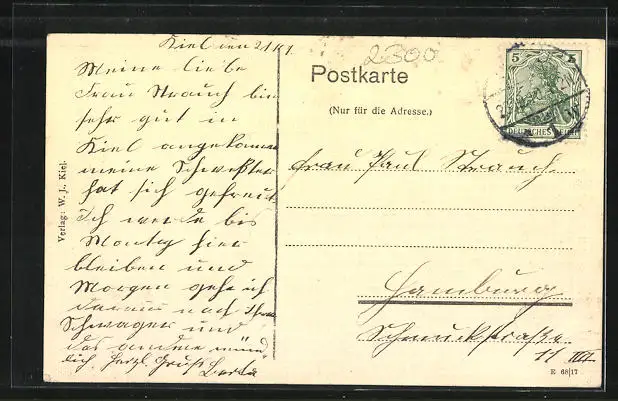 Kiel den 21/1.
Meine liebe
Frau Strauch bin
sehr gut in
Kiel angekommen
meine Schwester
hat sich gefreut
Ich werde bis
Montag hier
bleiben und
Morgen gehe ich
darum nach Ihren
Schwager und
das andere münd
lich. Herzl. Gruß Berta
Verlag: W. J., Kiel.
2300
Postkarte
(Nur für die Adresse.)
5 5
DEUTSCHES REICH
Frau Paul Strauch.
Hamburg
Schmuckstraße
11 III.
E 68|17